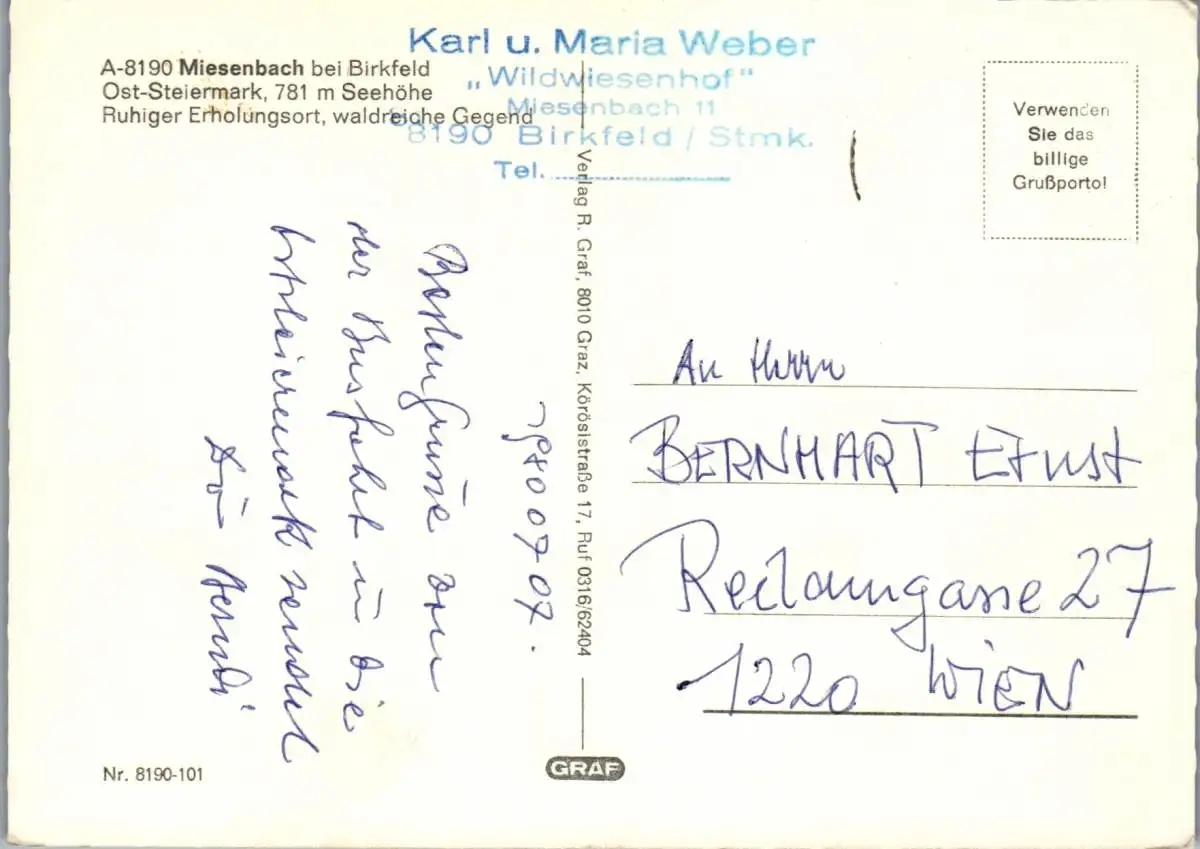 Karl u. Maria Weber
„Wildwiesenhof"
Miesenbach 11
8190 Birkfeld / Stmk.
Tel.
A-8190 Miesenbach bei Birkfeld
Ost-Steiermark, 781 m Seehöhe
Ruhiger Erholungsort, waldreiche Gegend
Verwenden
Sie das
billige
Grußporto!
Verlag R. Graf, 8010 Graz, Körösistraße 17, Ruf 0316/62404
1980 07 07.
Beste Grüsse von
der Busfahrt in die
Oststeiermark sendet
An Herrn
BERNHART Ernst
Reclamgasse 27
1220 WIEN
Nr. 8190-101
GRAF